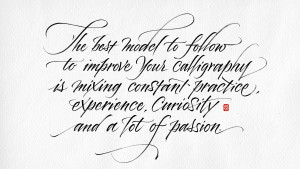 The best model to follow
to improve Your calligraphy
is mixing constant practice,
experience, Curiosity
and a lot of passion